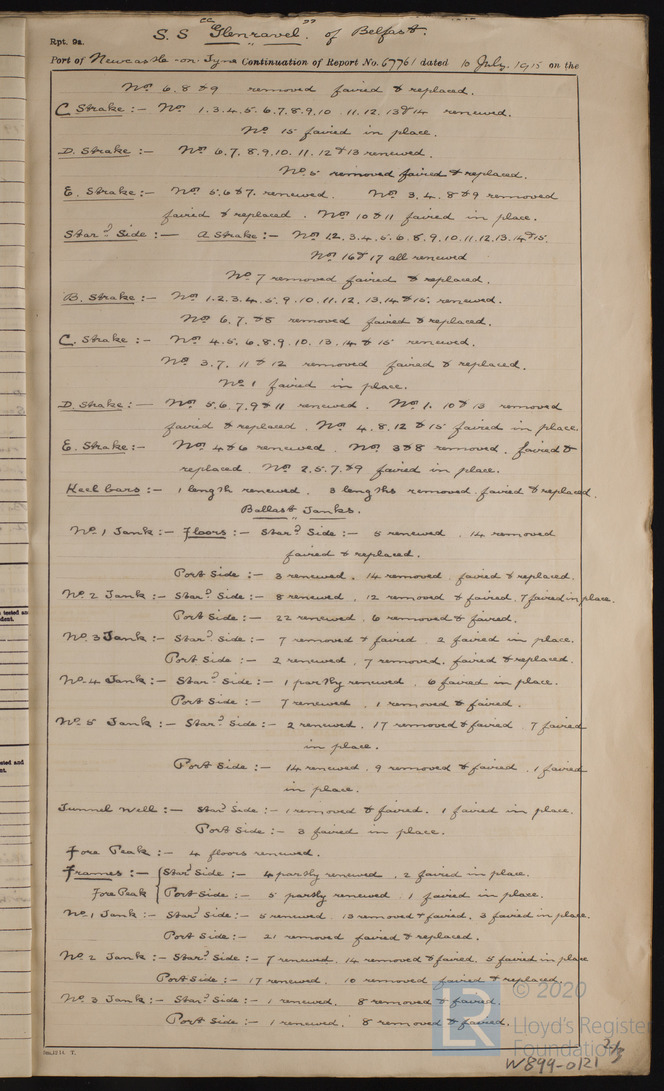 S. S "Glenravel". of Belfast.
Rpt. 9a.
Port of Newcastle-on-Tyne Continuation of Report No. 67761 dated 10 July, 1915 on the
Nos 6, 8 & 9 removed faired & replaced.
C Strake :- Nos 1.3.4.5.6.7.8.9.10. 11.12. 13 & 14 renewed.
No 15 faired in place.
D. Strake :- Nos 6.7. 8.9.10. 11. 12 & 13 renewed.
No. 5 removed faired & replaced.
E. Strake :- Nos 5.6 & 7. renewed. Nos 3, 4. 8 & 9 removed
faired & replaced. Nos 10 & 11 faired in place.
Stard Side :- A Strake :- Nos 1.2.3.4.5.6.8.9.10.11.12.13.14 & 15.
Nos 16 & 17 all renewed
No 7 removed faired & replaced.
B. Strake :- Nos 1.2.3.4.5.9.10.11.12. 13.14 & 15. renewed.
Nos 6, 7. & 8 removed faired & replaced.
C. Strake :- Nos 4.5.6.8.9.10. 13. 14 & 15 renewed.
Nos 3.7. 11 & 12 removed faired & replaced.
No 1 faired in place.
D. Strake :- Nos 5.6.7.9 & 11 renewed. Nos 1. 10 & 13 removed
faired & replaced. Nos 4. 8. 12 & 15 faired in place.
E. Strake :- Nos 4 & 6 renewed. Nos 3 & 8 removed. faired &
replaced Nos 2.5.7. & 9 faired in place.
Keel bars :- 1 length renewed. 3 lengths removed. faired & replaced.
Ballast Tanks.
No. 1 Tank :- Floors :- Stard Side :- 5 renewed. 14 removed
faired & replaced.
Port Side :- 3 renewed. 14 removed. faired & replaced.
No. 2 Tank :- Stard Side :- 8 renewed. 12 removed & faired. 7 faired in place.
Port Side :- 22 renewed. 6 removed & faired.
No. 3 Tank :- Stard Side :- 7 removed & faired. 2 faired in place.
Port Side :- 2 renewed, 7 removed. faired & replaced.
No. 4 Tank :- Stard Side :- 1 partly renewed. 6 faired in place.
Port Side :- 7 renewed. 1 removed & faired.
No. 5 Tank :- Stard Side :- 2 renewed. 17 removed & faired. 7 faired
in place.
Port Side :- 14 renewed. 9 removed & faired. 1 faired
in place.
Tunnel Well :- Stard Side :- 1 removed & faired. 1 faired in place.
Port Side :- 3 faired in place.
Fore Peak :- 4 floors renewed.
Frames :- Stard Side :- 4 partly renewed. 2 faired in place.
Fore Peak Port Side :- 5 partly renewed. 1 faired in place.
No. 1 Tank :- Stard Side :- 5 renewed. 13 removed & faired. 3 faired in place.
Port Side :- 21 removed faired & replaced.
No. 2 Tank :- Stard Side :- 7 renewed. 14 removed & faired. 5 faired in place
Port Side :- 17 renewed. 10 removed faired & replaced
No. 3 Tank :- Stard Side :- 1 renewed. 8 removed & faired.
Port Side :- 1 renewed. 8 removed & faired.
© 2020
LR
Lloyd's Register
Foundation
W899-0121 2/3